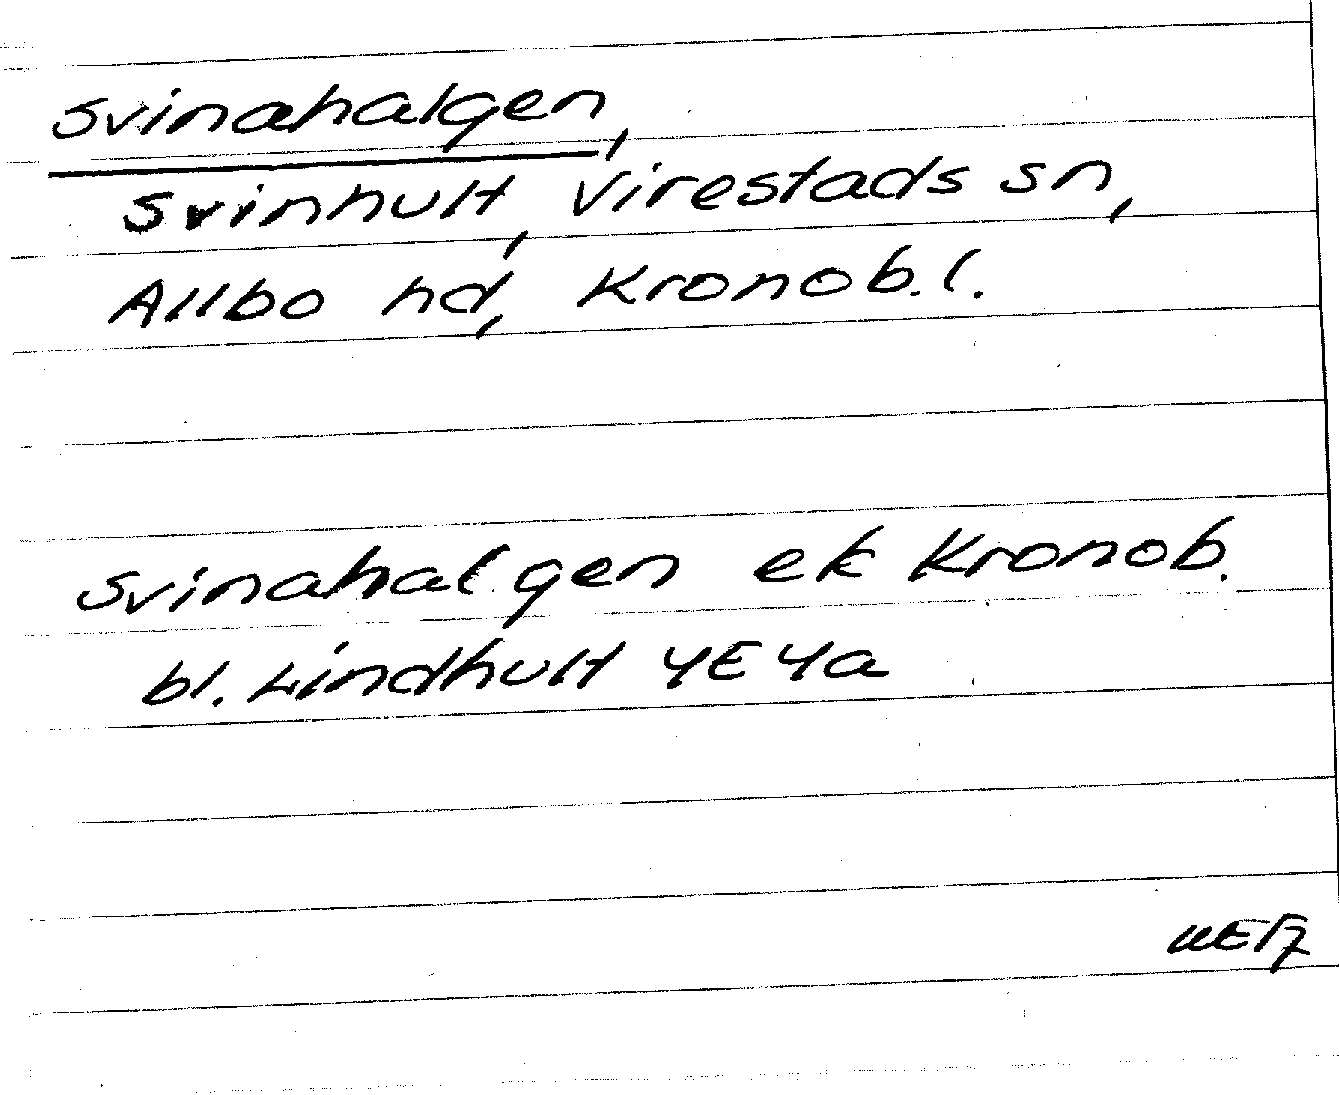 Svinahalgen,
Svinhult, Virestads sn,
Allbo hd, Kronob. l.
Svinahalgen ek Kronob.
bl. Lindhult 4E4a